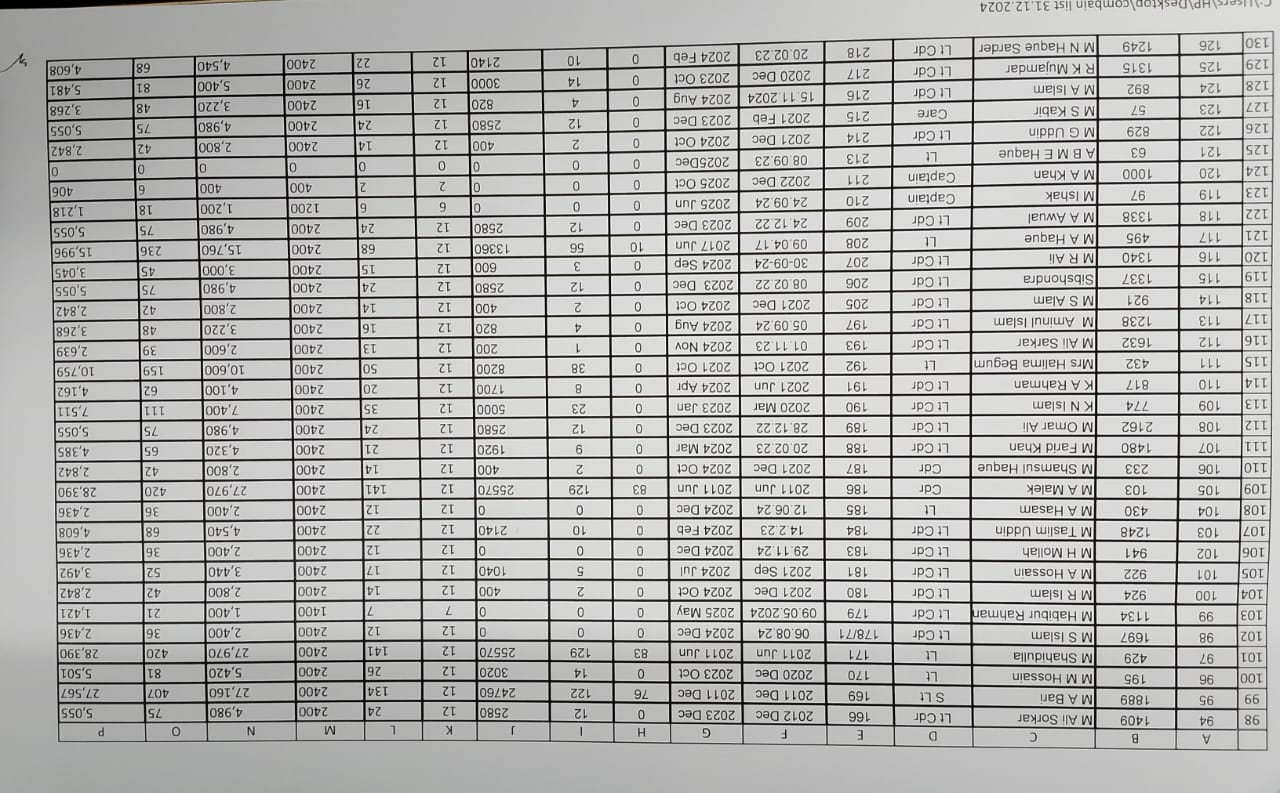 A B C D E F G H I J K L M N O P
98 94 1409 M Ali Sorkar Lt Cdr 166 2012 Dec 2023 Dec 0 12 2580 12 24 2400 4,980 75 5,055
99 95 1889 M A Bari S Lt 169 2011 Dec 2011 Dec 76 122 24760 12 134 2400 27,160 407 27,567
100 96 195 M M Hossain Lt 170 2020 Dec 2023 Oct 0 14 3020 12 26 2400 5,420 81 5,501
101 97 429 M Shahidulla Lt 171 2011 Jun 2011 Jun 83 129 25570 12 141 2400 27,970 420 28,390
102 98 1697 M S Islam Lt Cdr 178/71 06.08.24 2024 Dec 0 0 0 12 12 2400 2,400 36 2,436
103 99 1134 M Habibur Rahman Lt Cdr 179 09.05.2024 2025 May 0 0 0 7 7 1400 1,400 21 1,421
104 100 924 M R Islam Lt Cdr 180 2021 Dec 2024 Oct 0 2 400 12 14 2400 2,800 42 2,842
105 101 922 M A Hossain Lt Cdr 181 2021 Sep 2024 Jul 0 5 1040 12 17 2400 3,440 52 3,492
106 102 941 M H Mollah Lt Cdr 183 29.11.24 2024 Dec 0 0 0 12 12 2400 2,400 36 2,436
107 103 1248 M Taslim Uddin Lt Cdr 184 14.2.23 2024 Feb 0 10 2140 12 22 2400 4,540 68 4,608
108 104 430 M A Hasam Lt 185 12.06.24 2024 Dec 0 0 0 12 12 2400 2,400 36 2,436
109 105 103 M A Malek Cdr 186 2011 Jun 2011 Jun 83 129 25570 12 141 2400 27,970 420 28,390
110 106 233 M Shamsul Haque Cdr 187 2021 Dec 2024 Oct 0 2 400 12 14 2400 2,800 42 2,842
111 107 1480 M Farid Khan Lt Cdr 188 20.02.23 2024 Mar 0 9 1920 12 21 2400 4,320 65 4,385
112 108 2162 M Omar Ali Lt Cdr 189 28.12.22 2023 Dec 0 12 2580 12 24 2400 4,980 75 5,055
113 109 774 K N Islam Lt Cdr 190 2020 Mar 2023 Jan 0 23 5000 12 35 2400 7,400 111 7,511
114 110 817 K A Rahman Lt Cdr 191 2021 Jun 2024 Apr 0 8 1700 12 20 2400 4,100 62 4,162
115 111 432 Mrs Halima Begum Lt 192 2021 Oct 2021 Oct 0 38 8200 12 50 2400 10,600 159 10,759
116 112 1632 M Ali Sarkar Lt Cdr 193 01.11.23 2024 Nov 0 1 200 12 13 2400 2,600 39 2,639
117 113 1238 M Aminul Islam Lt Cdr 197 05.09.24 2024 Aug 0 4 820 12 16 2400 3,220 48 3,268
118 114 921 M S Alam Lt Cdr 205 2021 Dec 2024 Oct 0 2 400 12 14 2400 2,800 42 2,842
119 115 1337 Sibshondhra Lt Cdr 206 08.02.22 2023 Dec 0 12 2580 12 24 2400 4,980 75 5,055
120 116 1340 M R Ali Lt Cdr 207 30-09-24 2024 Sep 0 3 600 12 15 2400 3,000 45 3,045
121 117 495 M A Haque Lt 208 09.04.17 2017 Jun 10 56 13360 12 68 2400 15,760 236 15,996
122 118 1338 M A Awwal Lt Cdr 209 24.12.22 2023 Dec 0 12 2580 12 24 2400 4,980 75 5,055
123 119 97 M Ishak Captain 210 24.09.24 2025 Jun 0 0 0 6 6 1200 1,200 18 1,218
124 120 1000 M A Khan Captain 211 2022 Dec 2025 Oct 0 0 0 2 2 400 400 6 406
125 121 63 A B M E Haque Lt 213 08.09.23 2025Dec 0 0 0 0 0 0 0 0 0
126 122 829 M G Uddin Lt Cdr 214 2021 Dec 2024 Oct 0 2 400 12 14 2400 2,800 42 2,842
127 123 57 M S Kabir Care 215 2021 Feb 2023 Dec 0 12 2580 12 24 2400 4,980 75 5,055
128 124 892 M A Islam Lt Cdr 216 15.11.2024 2024 Aug 0 4 820 12 16 2400 3,220 48 3,268
129 125 1315 R K Mujamdar Lt Cdr 217 2020 Dec 2023 Oct 0 14 3000 12 26 2400 5,400 81 5,481
130 126 1249 M N Haque Sarder Lt Cdr 218 20.02.23 2024 Feb 0 10 2140 12 22 2400 4,540 68 4,608
C:\Users\HP\Desktop\combain list 31.12.2024